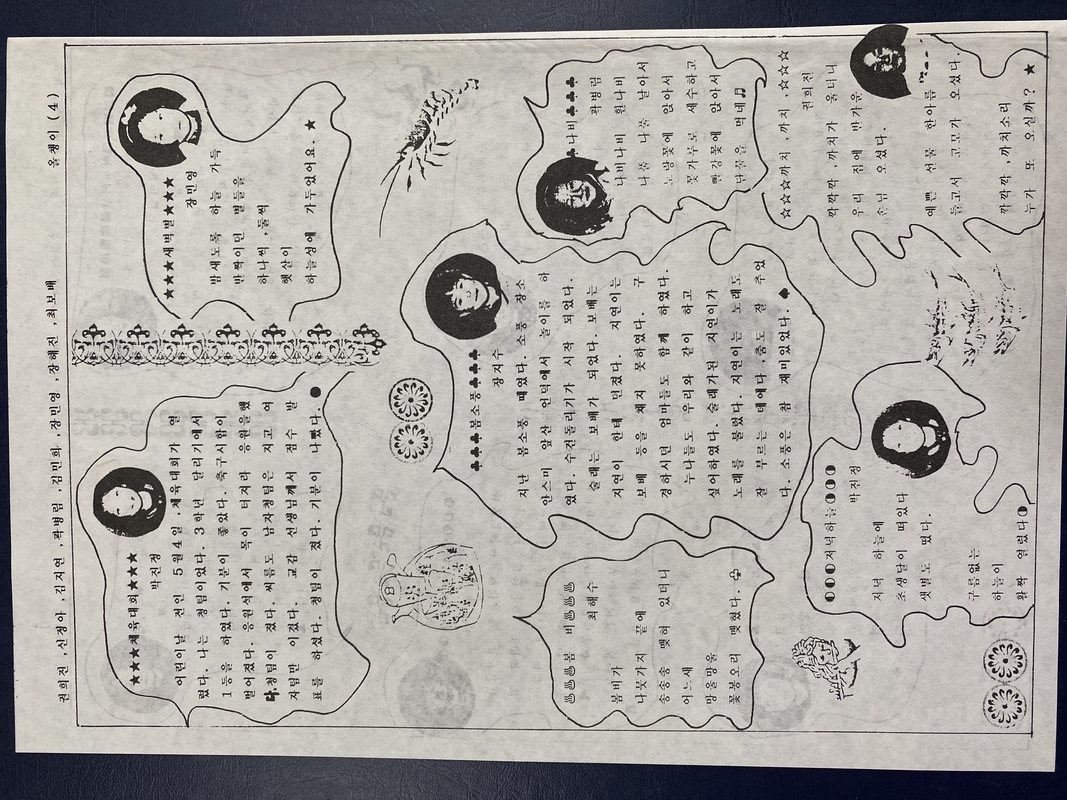 권희진 ,신정아 ,김지연 ,곽병림 ,김민희 ,장민영 ,장해진 ,최보배
올챙이 (4)
★★★★체육대회★★★★
박진정
어린이날 전인 5월4일 ,체육대회가 열
렸다. 나는 청팀이었다. 3학년 달리기에서
1등을 하였다. 기분이 좋았다. 축구시합이
벌어졌다. 응원석에서 목이 터져라 응원을했
다.청팀이 졌다. 씨름도 남자청팀은 지고 여
자팀만 이겼다. 교감 선생님께서 점수 발
표를 하셨다. 청팀이 졌다. 기분이 나빴다.
★★★★새벽별★★★★
장민영
밤새도록 하늘 가득
반짝이던 별들을
하나씩 ,둘씩
햇살이
하늘성에 가두었어요. ★
♣♣♣♣봄소풍♣♣♣♣
장지수
지난 봄소풍 때였다. 소풍 장소
안스미 앞산 언덕에서 놀이를 하
였다. 수건돌리기가 시작 되었다.
술래는 보배가 되었다. 보배는
지연이 한테 던졌다. 지연이는
보배 등을 채지 못하였다. 구
경하시던 엄마들도 함께 하였다.
누나들도 우리와 같이 하고
싶어하였다. 술래가된 지연이가
노래를 불렀다. 지연이는 노래도
잘 부르는 데에다 춤도 잘 추었
다. 소풍은 참 재미있었다. ♠
♨♨♨♨봄 비♨♨♨♨
최해수
봄비가
나뭇가지 끝에
송송송 맺혀 있더니
어느새
망울망울
꽃봉오리 맺혔다. ♧
나비♣♣♣♣
곽병림
나비나비 흰나비
나풀 나풀 날아서
노랑꽃에 앉아서
꽃가루로 세수하고
빨강꽃에 앉아서
단꿀을 먹네♬
☆☆☆까치 ,까치 ,☆☆☆
권희진
깍깍깍 ,까치가 울더니
우리 집에 반가운
손님 오셨다.
예쁜 선물 한아름
들고서 고모가 오셨다.
깍깍깍 ,까치소리
누가 또 오실까? ★
◐◐◐저녁하늘◐◐◐
박진정
저녁 하늘에
초생달이 떠있다
샛별도 떴다.
구름없는
하늘이
활짝 열렸다◑